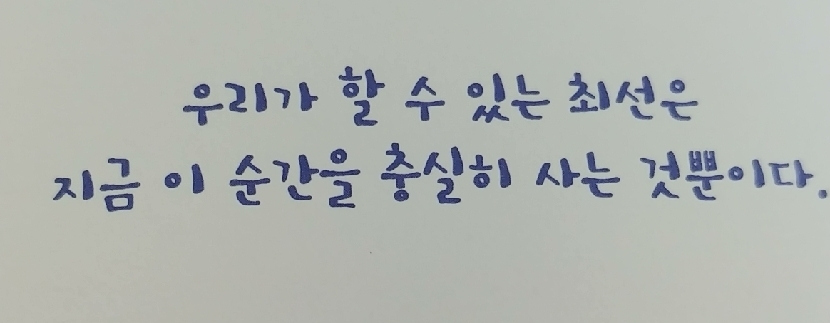 우리가 할 수 있는 최선은
지금 이 순간을 충실히 사는 것뿐이다.